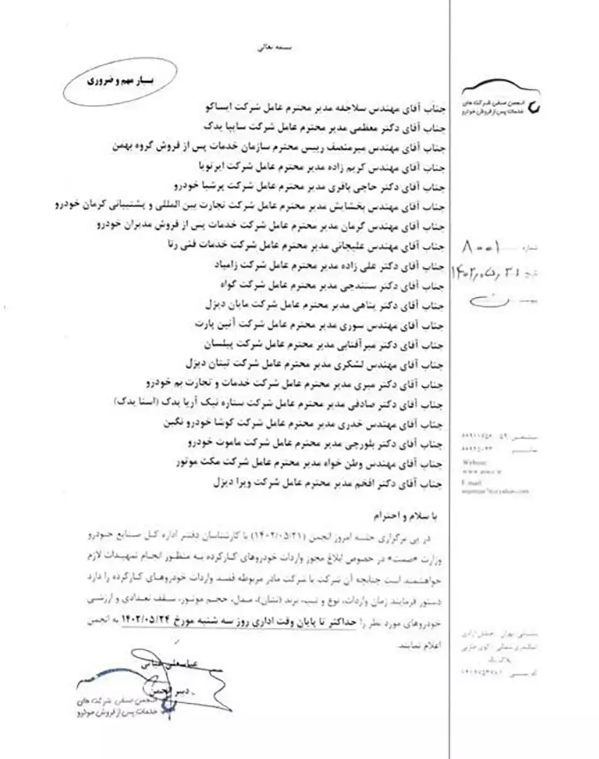 بسمه تعالی
بسیار مهم و ضروری
انجمن صنفی شرکت های
خدمات پس از فروش خودرو
جناب آقای مهندس سلاجقه مدیر محترم عامل شرکت ایساکو
جناب آقای دکتر معظمی مدیر محترم عامل شرکت سایپا یدک
جناب آقای مهندس میرمنصف رییس محترم سازمان خدمات پس از فروش گروه بهمن
جناب آقای مهندس کریم زاده مدیر محترم عامل شرکت ایرتویا
جناب آقای دکتر حاجی باقری مدیر محترم عامل شرکت پرشیا خودرو
جناب آقای مهندس بخشایش مدیر محترم عامل شرکت تجارت بین المللی و پشتیبانی کرمان خودرو
جناب آقای مهندس گرمان مدیر محترم عامل شرکت خدمات پس از فروش مدیران خودرو
جناب آقای مهندس علیجانی مدیر محترم عامل شرکت خدمات فنی رنا
جناب آقای دکتر علی زاده مدیر محترم عامل شرکت زامیاد
جناب آقای دکتر سنندجی مدیر محترم عامل شرکت گواه
جناب آقای دکتر پناهی مدیر محترم عامل شرکت مایان دیزل
جناب آقای مهندس سوری مدیر محترم عامل شرکت آتین پارت
جناب آقای دکتر میرآفتابی مدیر محترم عامل شرکت پیلسان
جناب آقای مهندس لشکری مدیر محترم عامل شرکت تیتان دیزل
جناب آقای دکتر میری مدیر محترم عامل شرکت خدمات و تجارت بم خودرو
جناب آقای دکتر صادقی مدیر محترم عامل شرکت ستاره نیک آریا یدک (استا یدک)
جناب آقای مهندس خدری مدیر محترم عامل شرکت کوشا خودرو نگین
جناب آقای دکتر بلورچی مدیر محترم عامل شرکت ماموت خودرو
جناب آقای مهندس وطن خواه مدیر محترم عامل شرکت مکث موتور
جناب آقای دکتر افخم مدیر محترم عامل شرکت ویرا دیزل
با سلام و احترام
در پی برگزاری جلسه امروز انجمن (۱۴۰۲/۰۵/۲۱) با کارشناسان دفتر اداره کل صنایع خودرو
وزارت «صمت» در خصوص ابلاغ مجوز واردات خودروهای کارکرده به منظور انجام تمهیدات لازم
خواهشمند است چنانچه آن شرکت یا شرکت مادر مربوطه قصد واردات خودروهای کارکرده را دارد
دستور فرمایند زمان واردات، نوع و تیپ، برند (نشان)، مدل، حجم موتور، سقف تعدادی و ارزشی
خودروهای مورد نظر را حداکثر تا پایان وقت اداری روز سه شنبه مورخ ۱۴۰۲/۰۵/۲۴ به انجمن
اعلام نمایند.
عباسعلی
دبیر انجمن
انجمن صنفی شرکت های
خدمات پس از فروش خودرو
شماره ۸۰۰۱
تاریخ ۱۴۰۲,۰۵,۲۱
پیوست
Website:
E.mail